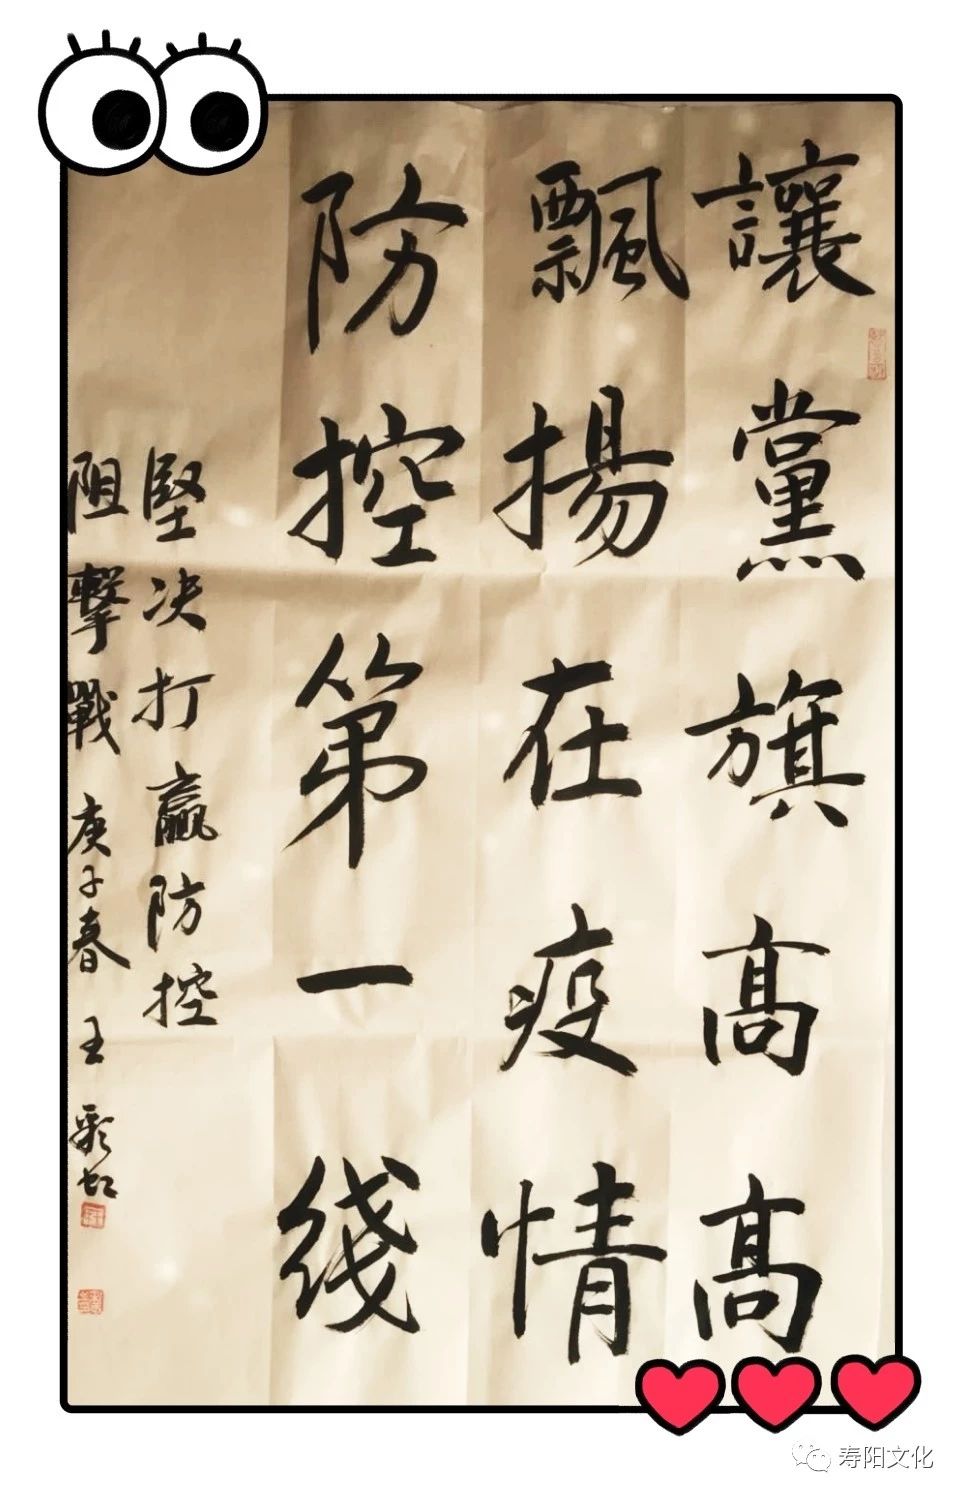 讓黨旗高高
飄揚在疫情
防控第一綫
堅决打贏防控
阻擊戰 庚子春 王彩虹
寿阳文化